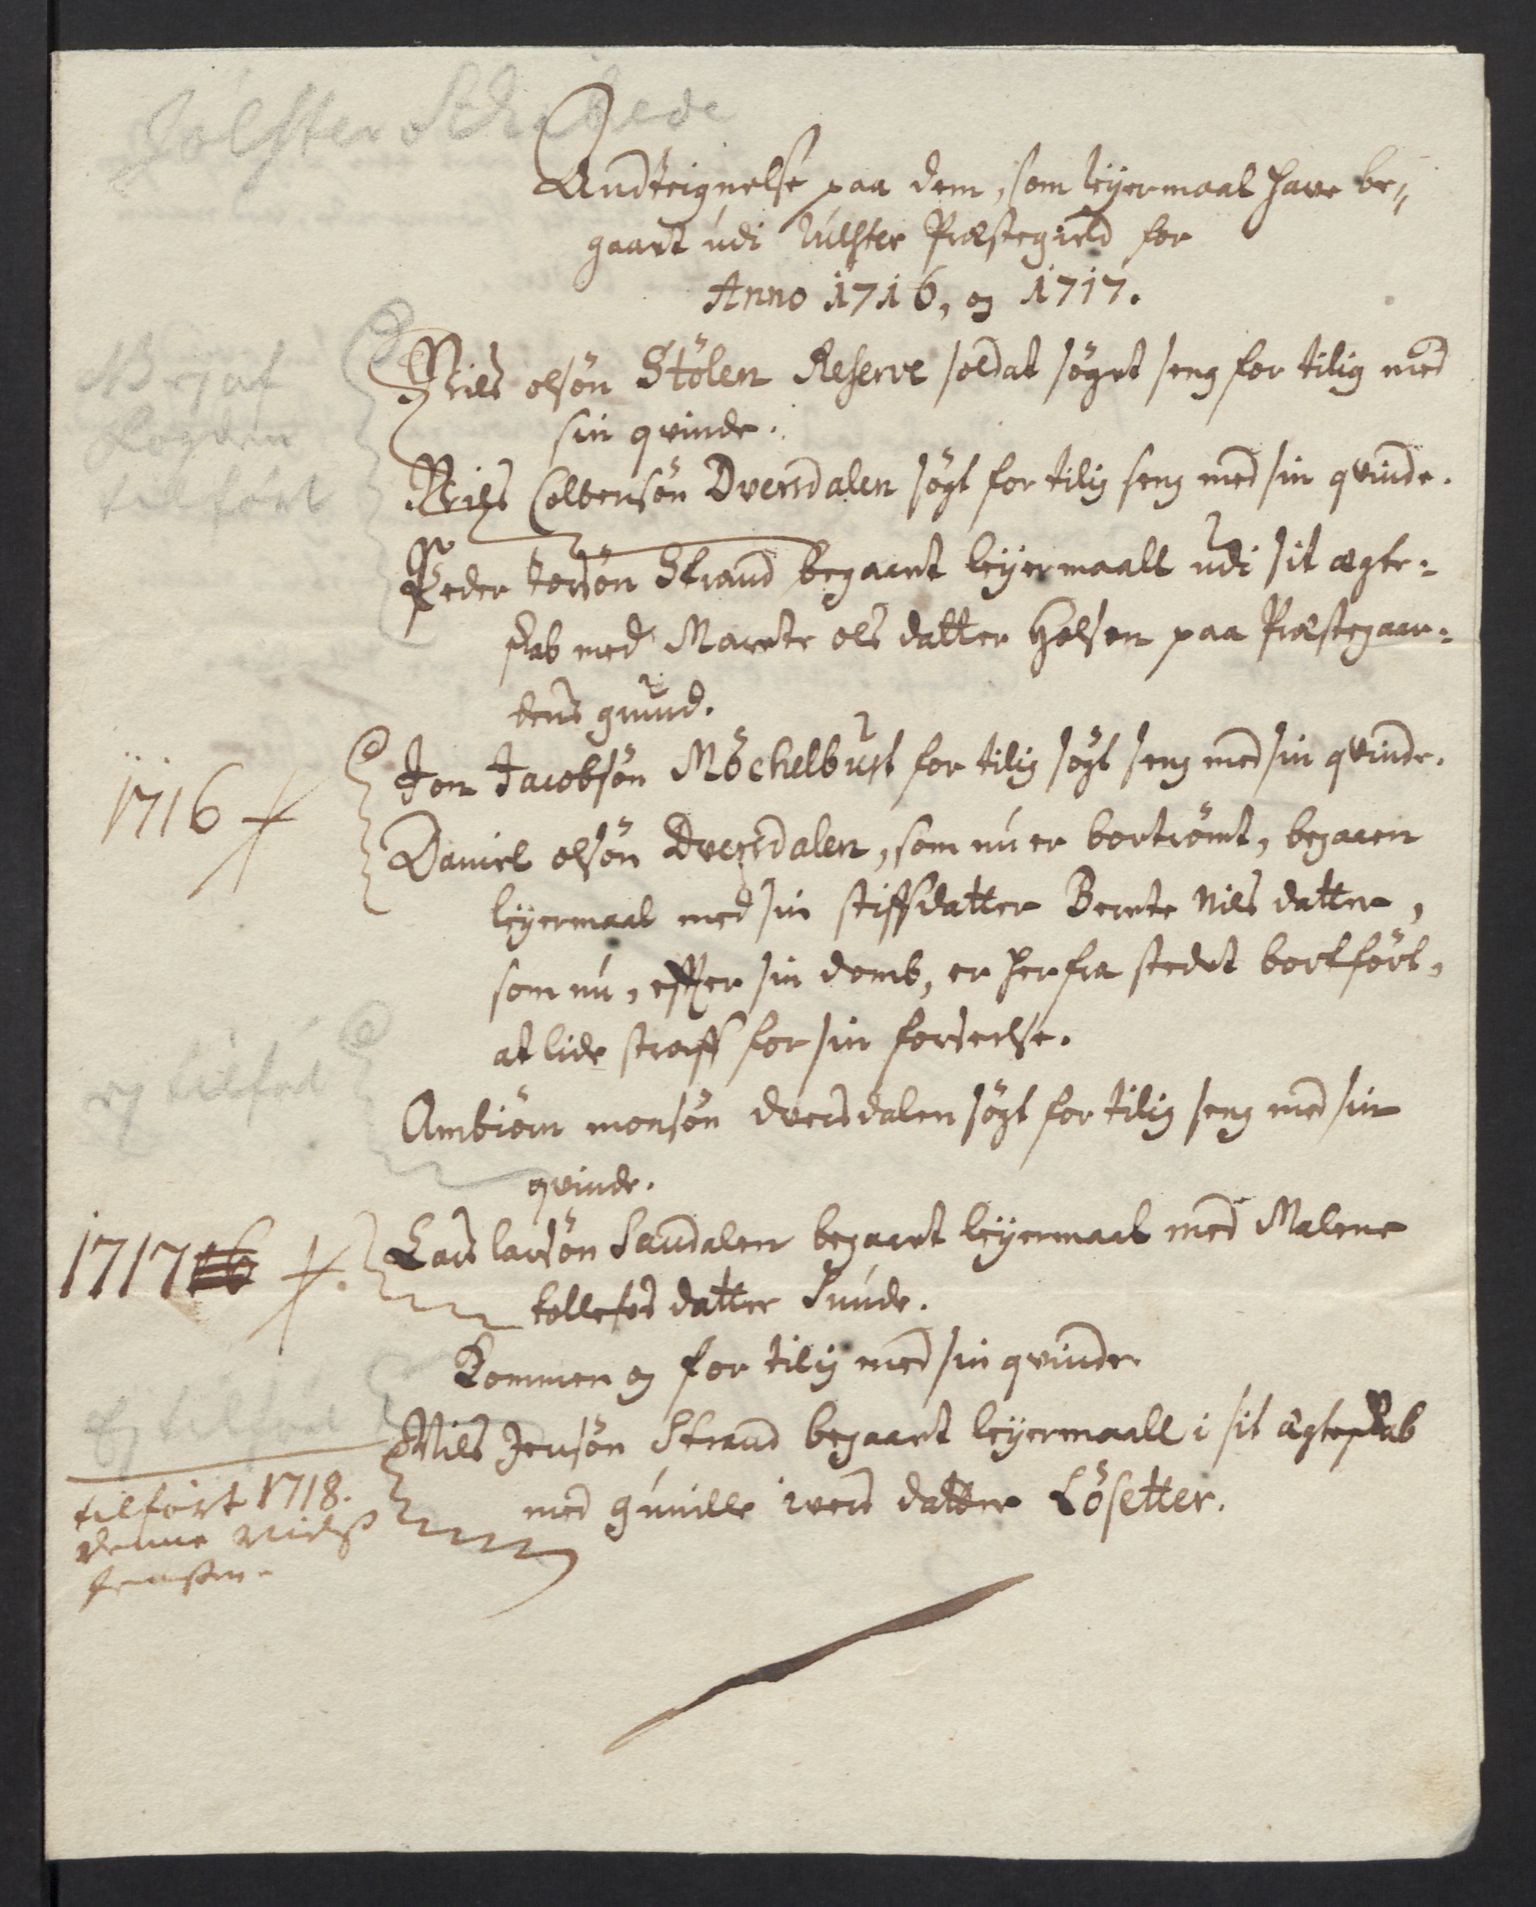 Jölster Schibrede
Andteignelse paa dem, som leÿermaal have be,,
gaaet udi Iulster Præstegield for
Anno 1716, og 1717.
Niels olsön Stölen Reserve soldat söget seng for tilig med
sin qvinde.
Niels Colbensön Dversdalen sögt for tilig seng med sin qvinde.
Peder Torsön Strand begaaet leÿermaall udi sit ægte-
skab med Marete ols datter Helsen paa Præstegaar-
dens grund.
1716
Jon Jacobsön Möchelbust for tilig sögt seng med sin qvinde.
Daniel olsön Dversdalen, som nu er bortrömt, begaaen
leÿermaal med sin stiffdatter Berete Nils datter,
som nu, effter sin domb, er herfra stedet bortfört,
at lide straff for sin forseelse.
ej tilförd
Ambiörn monsön dversdalen sögt for tilig seng med sin
qvinde.
1717
Lars larsön Sandalen begaaet leÿermaal med Malene
tollefs datter Sunde.
Kommen og for tilig med sin qvinde
Ej tilförd
Niels Jensön Strand begaaet leÿermaall i sit ægteskab
med gunille ivers datter Lösetter.
tilfört 1718.
denne Nielß
Jenßen.